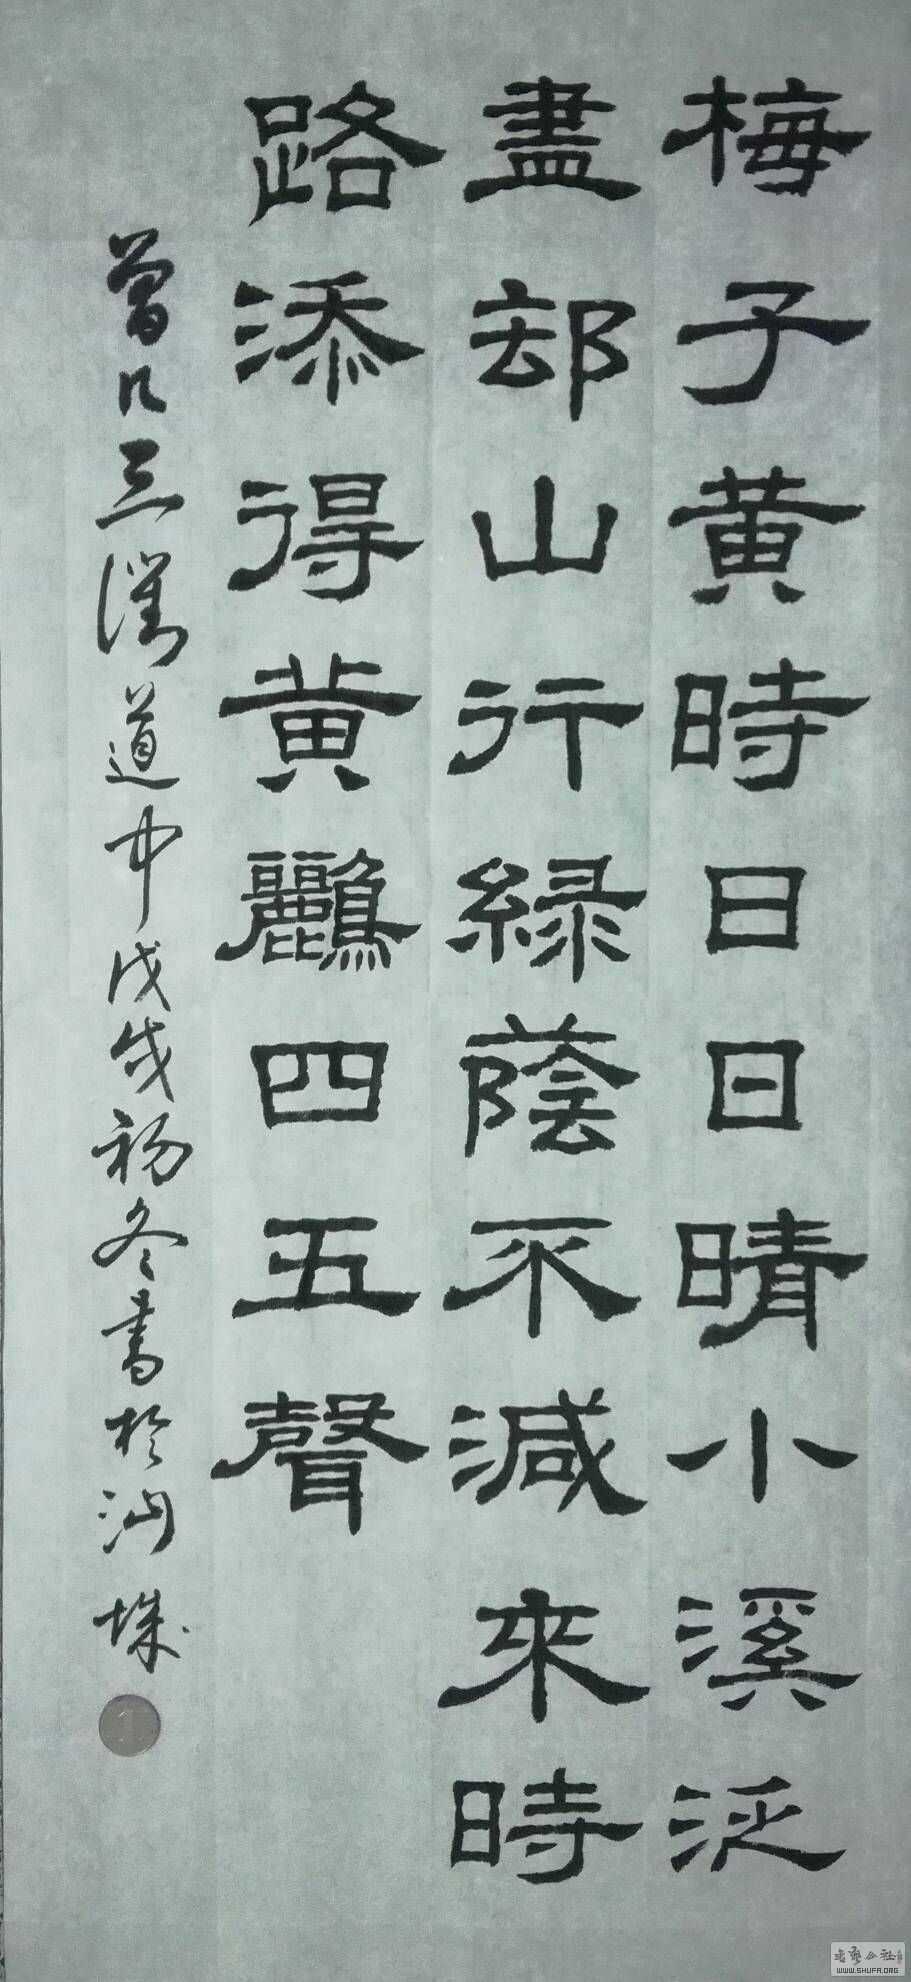 梅子黄時日日晴小溪泛
盡却山行緑蔭不減來時
路添得黄鸝四五聲
曾几三衢道中戊戌初冬書於汕城
1
書藝公社
WWW.SHUFA.ORG